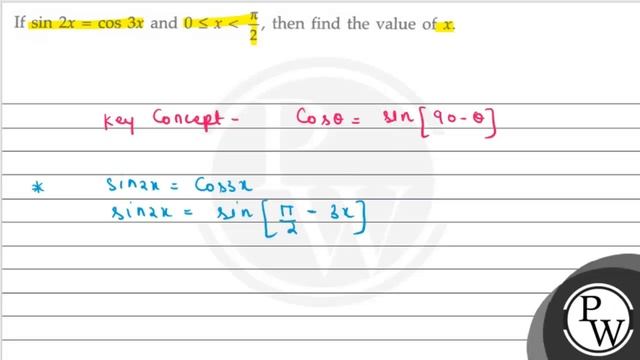 If sin 2x = cos 3x and 0 ≤ x < π/2, then find the value of x.
Key Concept - Cosθ = sin[90-θ]
* sin2x = Cos3x
sin2x = sin[π/2 - 3x]
PW